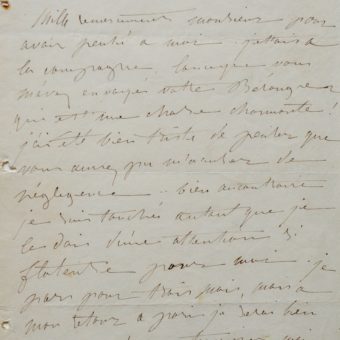 Mille remerciements monsieur pour
avoir pensé a moi. j'etais a
la campagne lorsque vous
m'avez envoyés votre Béranger
que est une chose charmante!
j'ai été bien triste de penser que
vous auriez pu m'accuser de
négligence .. bien au contraire
je suis touchée autant que je
le dois d'une attention si
flatteuse pour moi. je
pars pour trois mois, mais a
mon retour a paris je serai bien